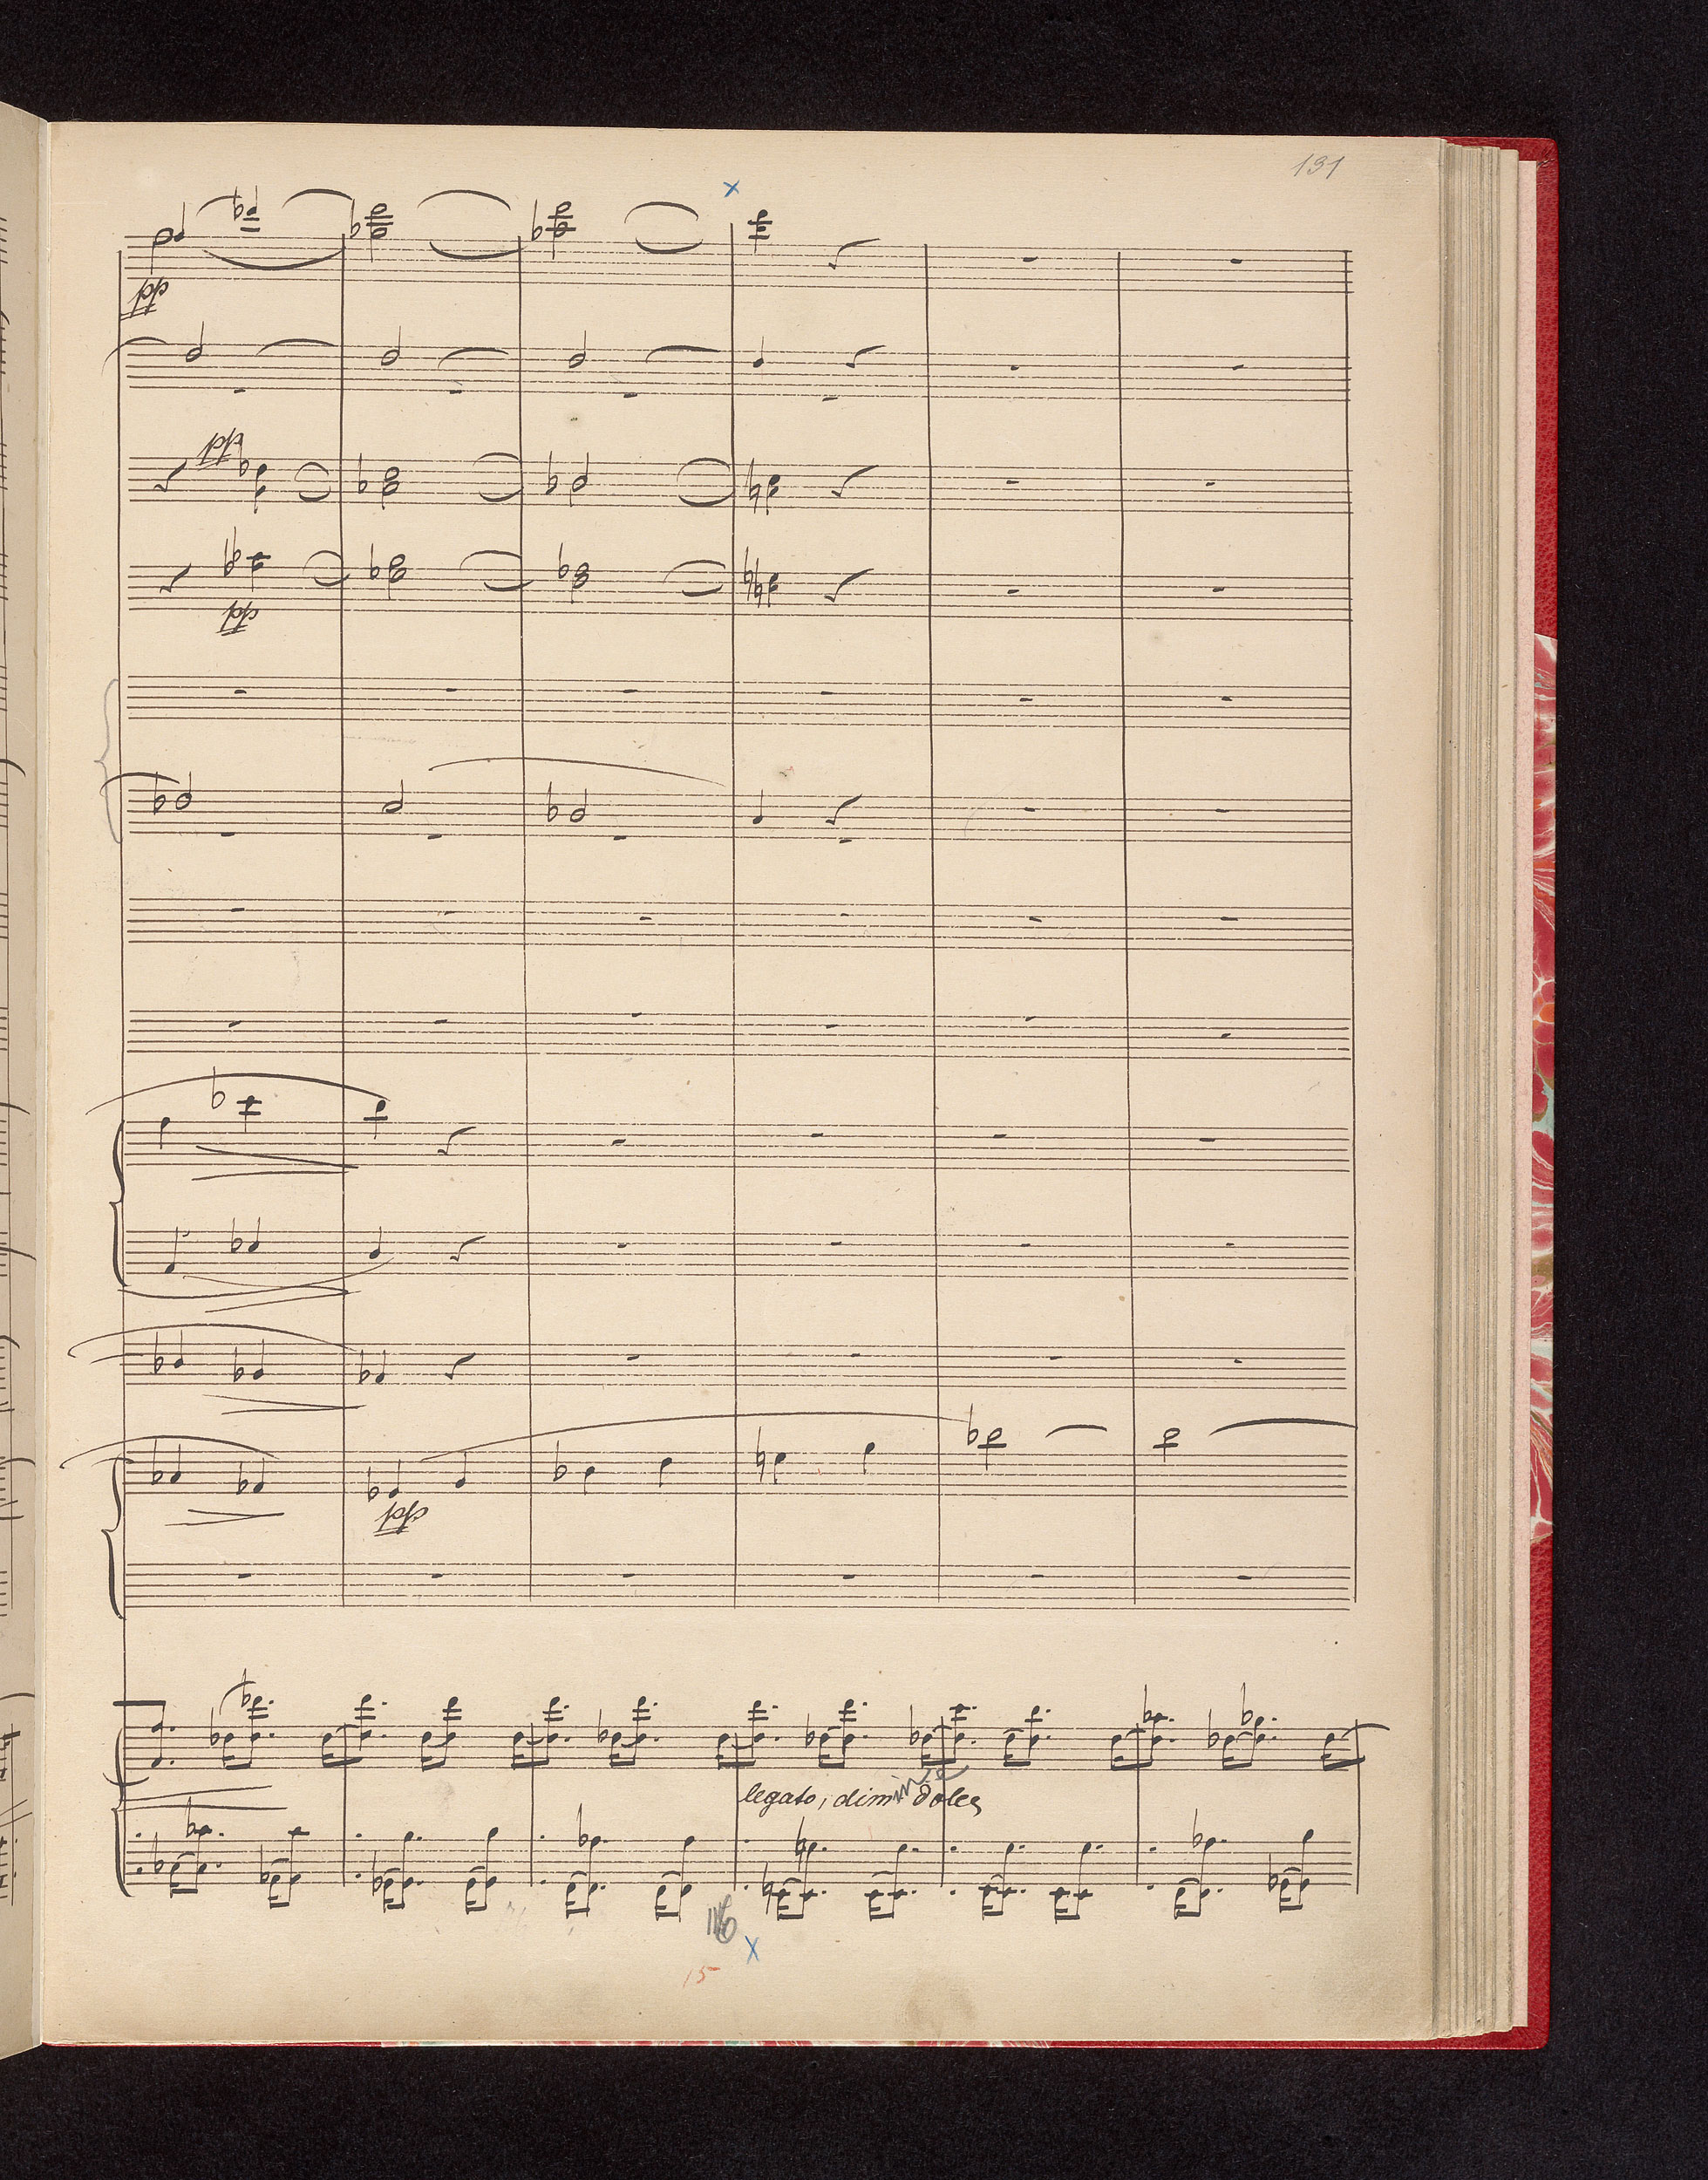 131
pp
pp
pp
pp
legato, dimin e dolce
16
15